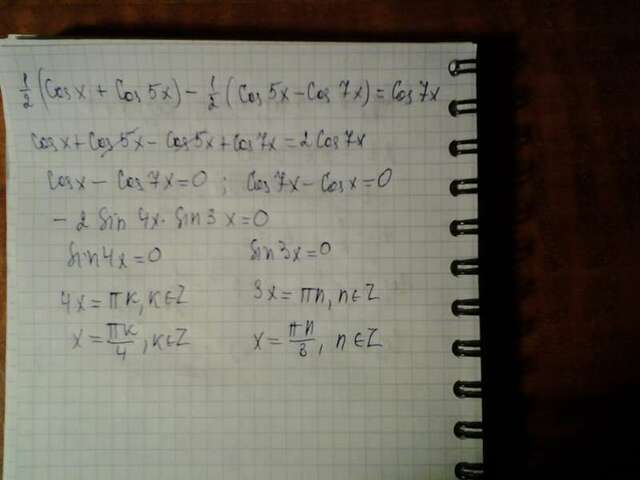 1/2 (Cos x + Cos 5x) - 1/2 (Cos 5x - Cos 7x) = Cos 7x
cos x + Cos 5x - Cos 5x + Cos 7x = 2 Cos 7x
Cos x - Cos 7x = 0 ; Cos 7x - Cos x = 0
- 2 Sin 4x · Sin 3x = 0
Sin 4x = 0 Sin 3x = 0
4x = πk, k∈Z 3x = πn, n∈Z
x = πk/4, k∈Z x = πn/3, n∈Z